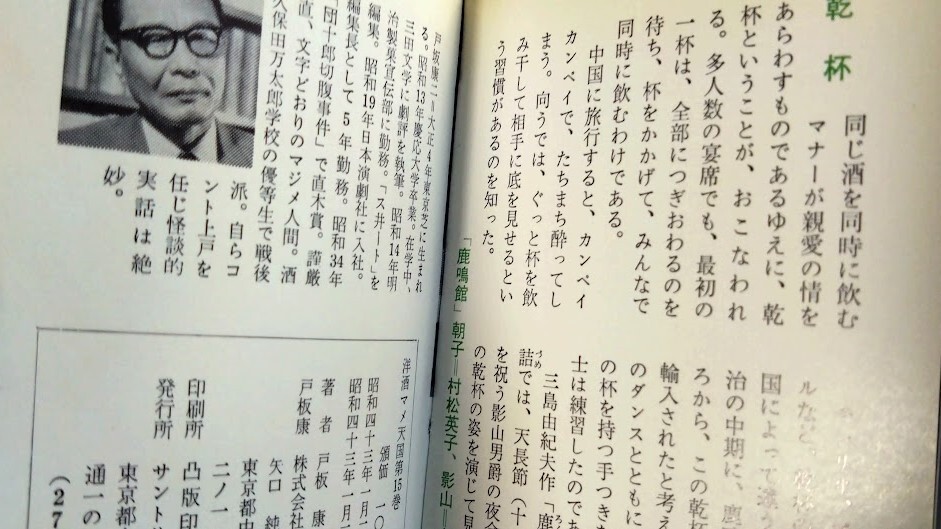 乾杯
同じ酒を同時に飲む
マナーが親愛の情を
あらわすものであるゆえに、乾
杯ということが、おこなわれ
る。多人数の宴席でも、最初の
一杯は、全部につぎおわるのを
待ち、杯をかかげて、みんなで
同時に飲むわけである。
中国に旅行すると、カンペイ
カンペイで、たちまち酔ってし
まう。向うでは、ぐっと杯を飲
み干して相手に底を見せるとい
う習慣があるのを知った。
国によって
治の中期に、鹿
ろから、この乾杯
輸入されたと考え
のダンスとともに
の杯を持つ手つき
士は練習したのであ
三島由紀夫作「鹿
詰では、天長節（十
を祝う影山男爵の夜会
の乾杯の姿を演じて見
「鹿鳴館」朝子＝村松英子、影山＝
戸坂康二＝大正4年東京芝に生まれ
る。昭和13年慶応大学卒業。在学中、
三田文学に劇評を執筆。昭和14年明
治製菓宣伝部に勤務。「スヰート」を
編集。昭和19年日本演劇社に入社。
編集長として5年勤務。昭和34年
団十郎切腹事件」で直木賞。謹厳
直、文字どおりのマジメ人間。酒
久保田万太郎学校の優等生で戦後
派。自らコ
ント上戸を
任じ怪談的
実話は絶
妙。
洋酒マメ天国第15巻
頒価
昭和四十三年一月
昭和四十三年一月
著者 戸板康
戸板康
株式会社
矢口純
東京都中
二ノ一
印刷所 凸版印
発行所 サント
東京都
通一の
(27